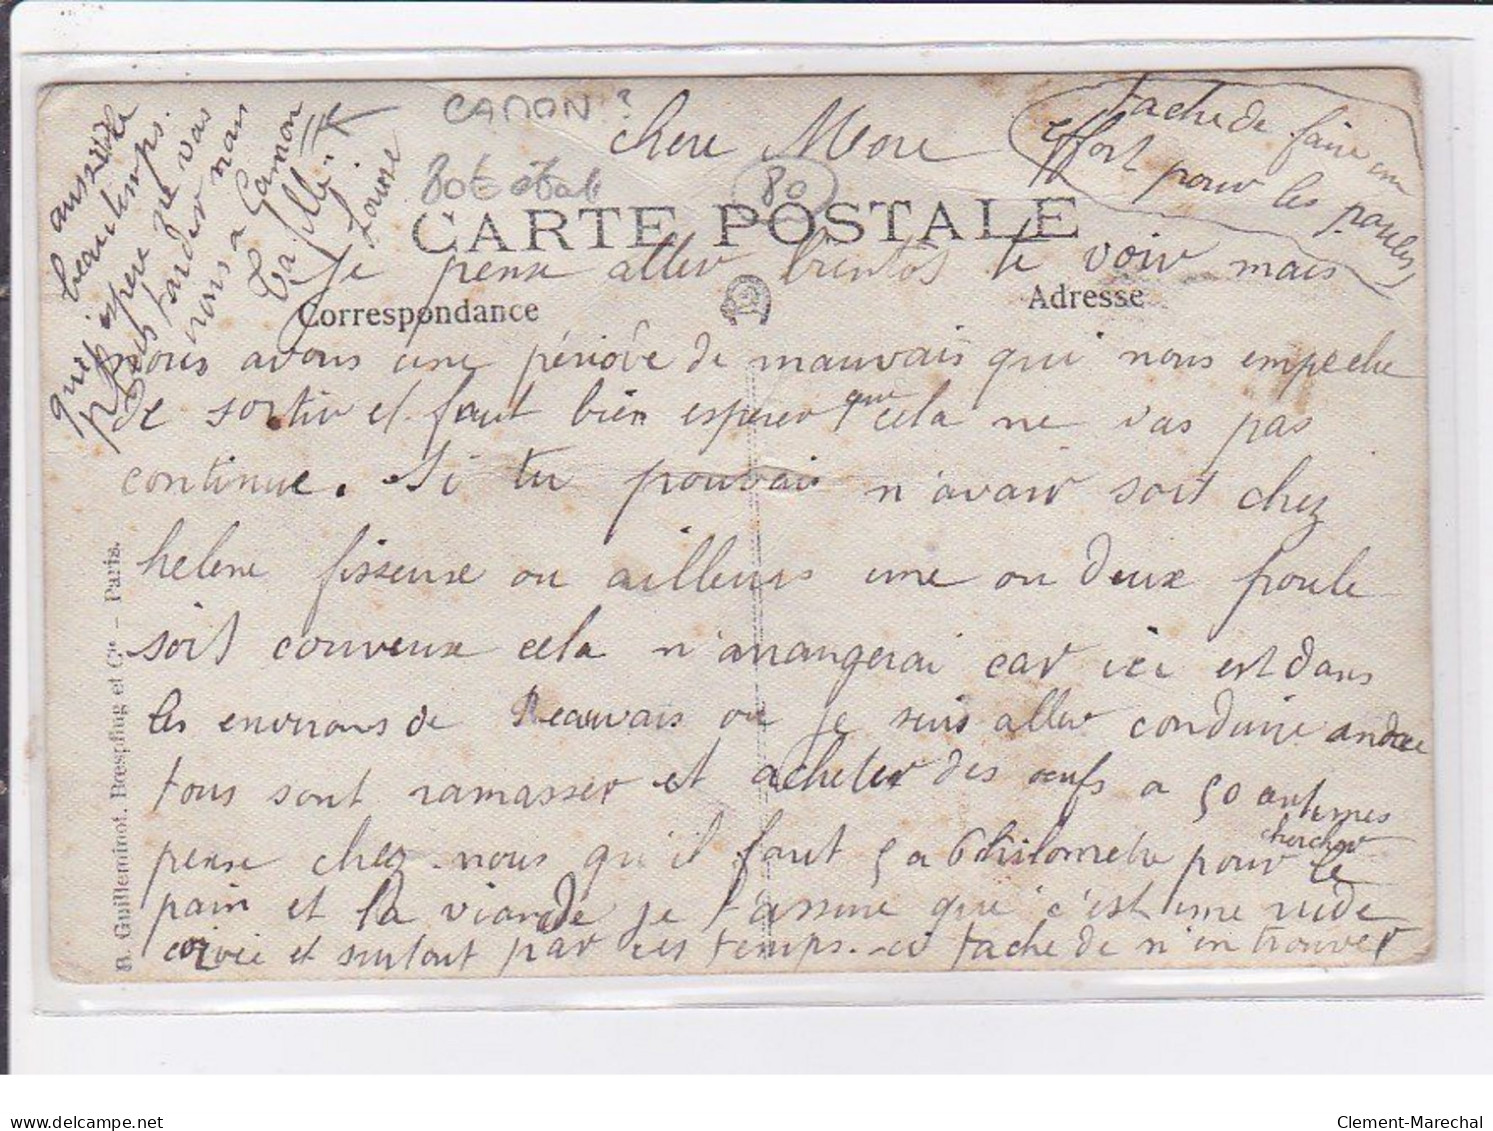 CANON ?
chere Mere
tache de faire un
effort pour les poules
CARTE POSTALE
80
Je pense aller bientôt te voir mais
Correspondance
Adresse
nous avons une période de mauvais qui nous empeche
de sortir et faut bien esperer que cela ne vas pas
continue. Si tu pouvais n'avair soit chez
helene fisseuse ou ailleurs une ou deux poule
soit couveuse cela n'arangerai car ici est dans
les environs de Beauvais ou je suis aller conduire andree
tous sont ramasser et acheter des œufs a 50 centimes
pense chez nous qu'il faut 5 a 6 kilometre pour chercher le
pain et la viande je t'assure que c'est une rude
corvée et surtout par ces temps-ci tache de n'en trouver
aussi de
beau temps.
j'espere que vas
pas tarder mais
nous a Camon
ta fille
Louise
R. Guilleminot, Bœspflug et Cie – Paris.
Clement-Marechal